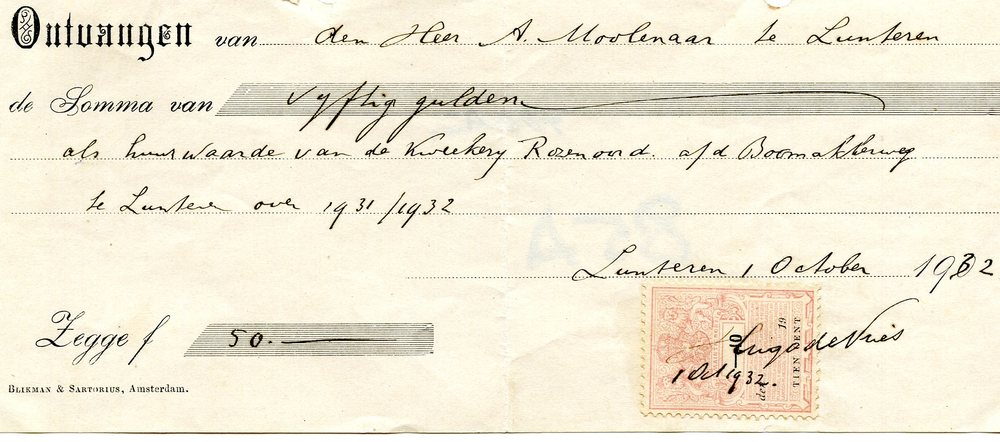 Ontvangen van den Heer A. Moolenaar te Lunteren
de Somma van vyftig gulden
als huurwaarde van de Kweekery Rozenoord a/d Boomakkerweg
te Lunteren over 1931/1932
Lunteren 1 October 1932
Zegge f 50.-
Hugo de Vries
1 Oct 1932.
10
TIEN CENT
den 19
BLIKMAN & SARTORIUS, Amsterdam.